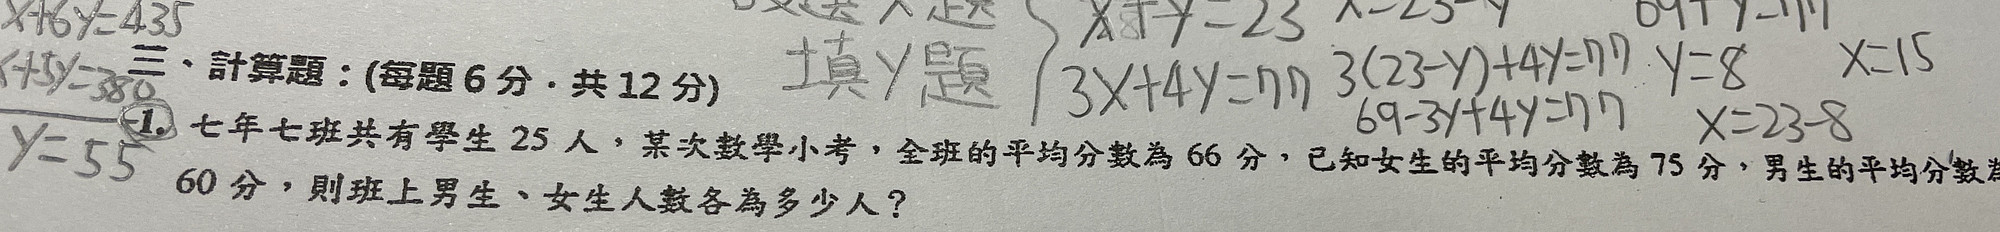 x+6y=435
x+5y=380
y=55
填y題
x+y=23
3x+4y=77
3(23-y)+4y=77
69-3y+4y=77
y=8
x=23-8
x=15
三、計算題：(每題6分．共12分)
1. 七年七班共有學生 25 人，某次數學小考，全班的平均分數為 66 分，已知女生的平均分數為 75 分，男生的平均分數為
60 分，則班上男生、女生人數各為多少人？